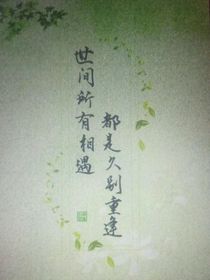 世间所有相遇
都是久别重逢